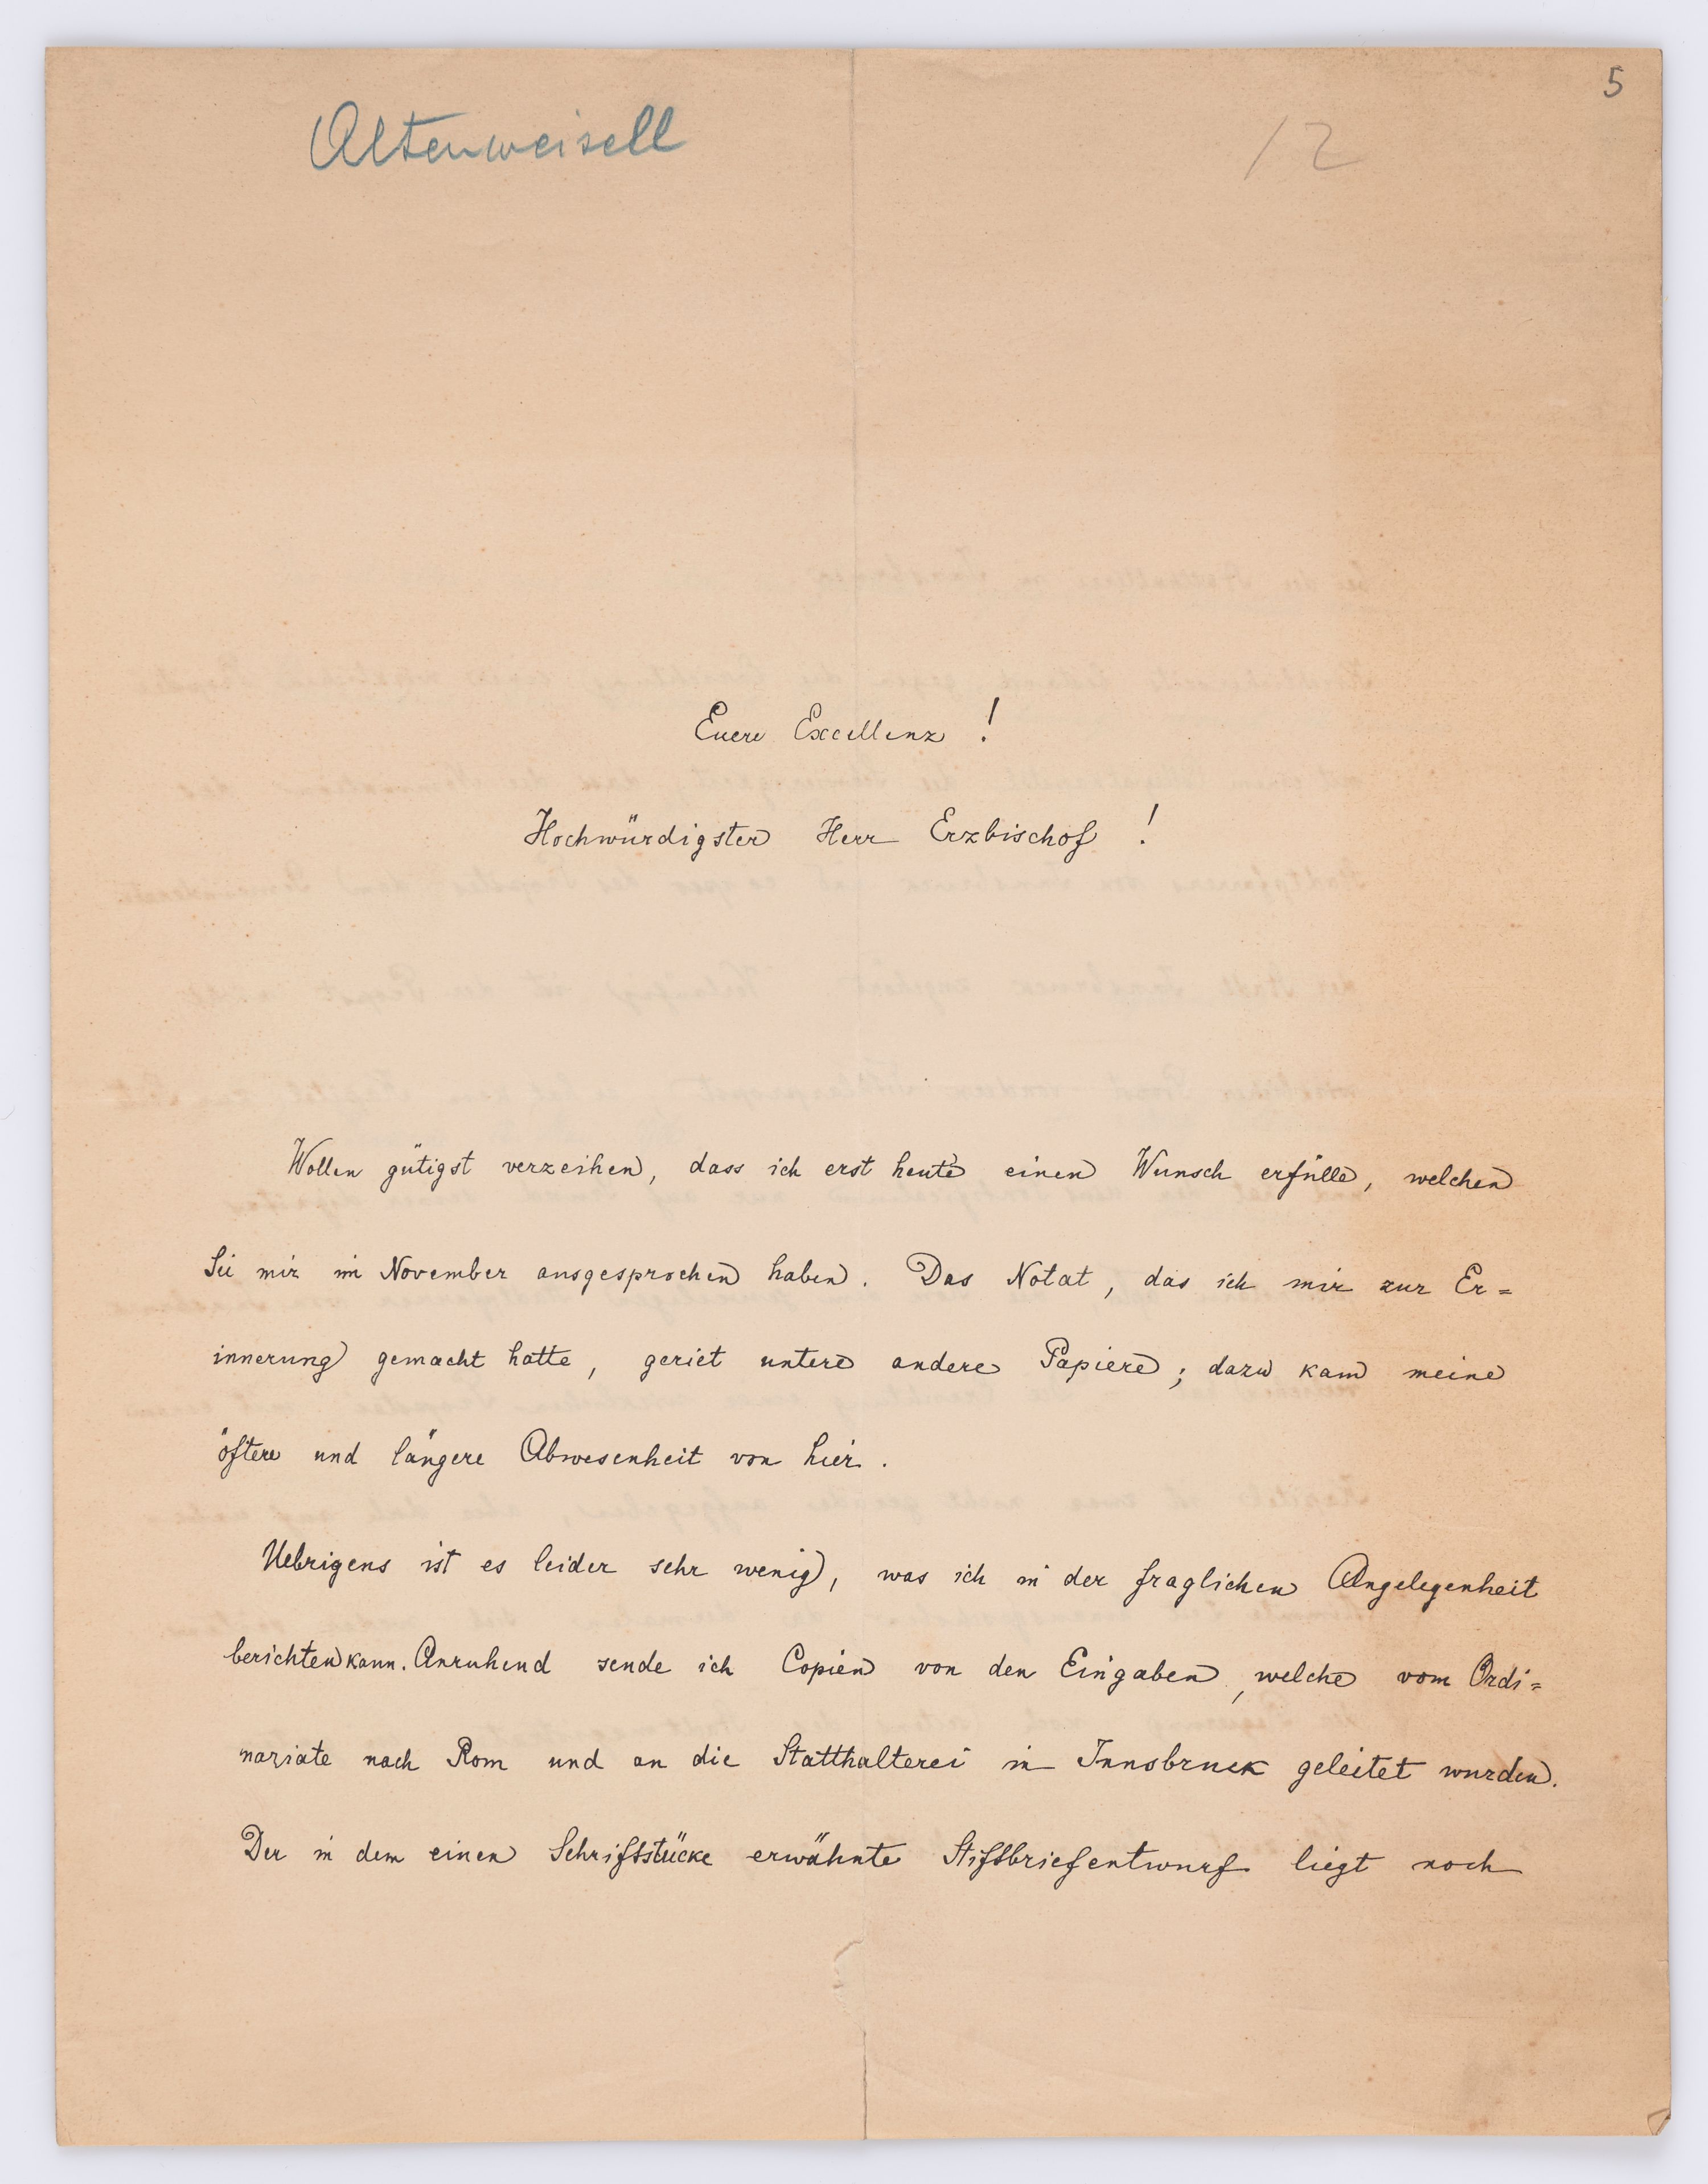 5
Altenweisell
12
Euere Excellenz !
Hochwürdigster Herr Erzbischof !
Wollen gütigst verzeihen, dass ich erst heute einen Wunsch erfülle, welchen
Sie mir im November ausgesprochen haben. Das Notat, das ich mir zur Er=
innerung gemacht hatte, geriet untere andere Papiere; dazu kam meine
öftere und längere Abwesenheit von hier.
Uebrigens ist es leider sehr wenig, was ich in der fraglichen Angelegenheit
berichten kann. Anruhend sende ich Copien von den Eingaben, welche vom Ordi=
nariate nach Rom und an die Statthalterei in Innsbruck geleitet wurden.
Der in dem einen Schriftstücke erwähnte Stiftbriefentwurf liegt noch